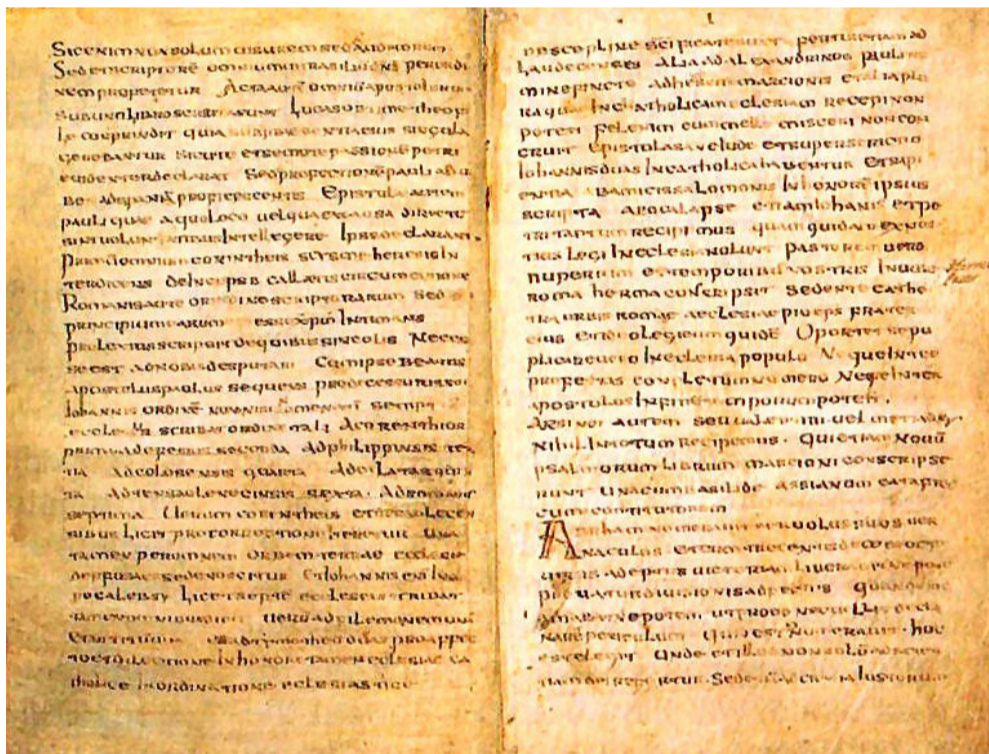 Sic enim non solum uisurem sed & auditorem
Sed & scriptorē omnium mirabiliū dñi per ordi
nem profetetur Acta autē omniū apostolorum
sub uno libro scribta sunt Lucas obtime theofi
le conprindit quia sub praesentia eius singula
gerebantur sicute et semote passionē petri
euidenter declarat Sed & profectionē pauli ab ur
be ad spaniā proficescentis Epistulae autem
pauli quae a quo loco uel qua ex causa directe
sint uolentatibus intellegere ipse declarant
primū omnium corintheis scysmae heresis in
terdicens deinceps b callaetis circumcisione
Romanis ornidine scripturarum sed et
principium earum esse xpm̄ intimans
prolexius scripsit de quibus sincolis neces
se est ad nobis desputari Cum ipse beatus
apostolus paulus sequens prodecessoris sui
Iohannis ordinē nonnisi nomenatī semptae
eccles scribat ordine tali a corenthios
prima ad efesius seconda ad philippinses ter
tia ad colosensis quarta ad calatas quin
ta ad tensaolenecinsis sexta · ad romanos
septima Uerum corentheis et thesaolecen
sibus licet pro correbtione iteretur una
tamen per omnem orbem terrae ecclesia
deffusa esse denoscitur Et Iohannis enī In a
pocalebsy licet septē eccleseis scribat
tamen omnibus dicit uerū ad filemonem una
et ad tymotheū duas pro affec
to et dilectione In honore tamen eclesiae ca
tholice In ordinatione eclesiastice
descepline scificate sunt fertur etiam ad
Laudecenses alia ad alexandrinos pauli no
mine fincte ad heresem marcionis et alia plu
ra quae In catholicam eclesiam recepi non
potest fel enim cum melle misceri non con
cruit epistola sane iude et superscrictio
Iohannis duas In catholica habentur et sapi
entia ab amicis salomonis In honorē ipsius
scripta apocalapse etiam Iohanis et pe
tri tantum recipimus quam quidam ex nos
tris legi In eclesia nolunt pastorem uero
nuperrim e temporibus nostris In urbe
roma herma conscripsit sedente cathe
tra urbis romae aeclesiae pio eps frater
eius et ideo legi eum quidē oportet se pu
plicare uero In eclesia populo Neque inter
profetas conpletum numero Neque Inter
apostolos In fine temporum potest.
Arsinoi autem seu ualentini uel mitiadis
nihil In totum recipemus · qui etiam nouū
psalmorum librum marcioni conscripse
runt una cum basilide assianom catafry
cum contitutorem
Abraham nomerauit seruolus suos uer
naculos et cum trecentis dece et octo
uiris adeptus uictoriam liberauit nepotē
diuisionis adfectus quando
nepotem ut pro eo
periculum qui est
unde et non solū